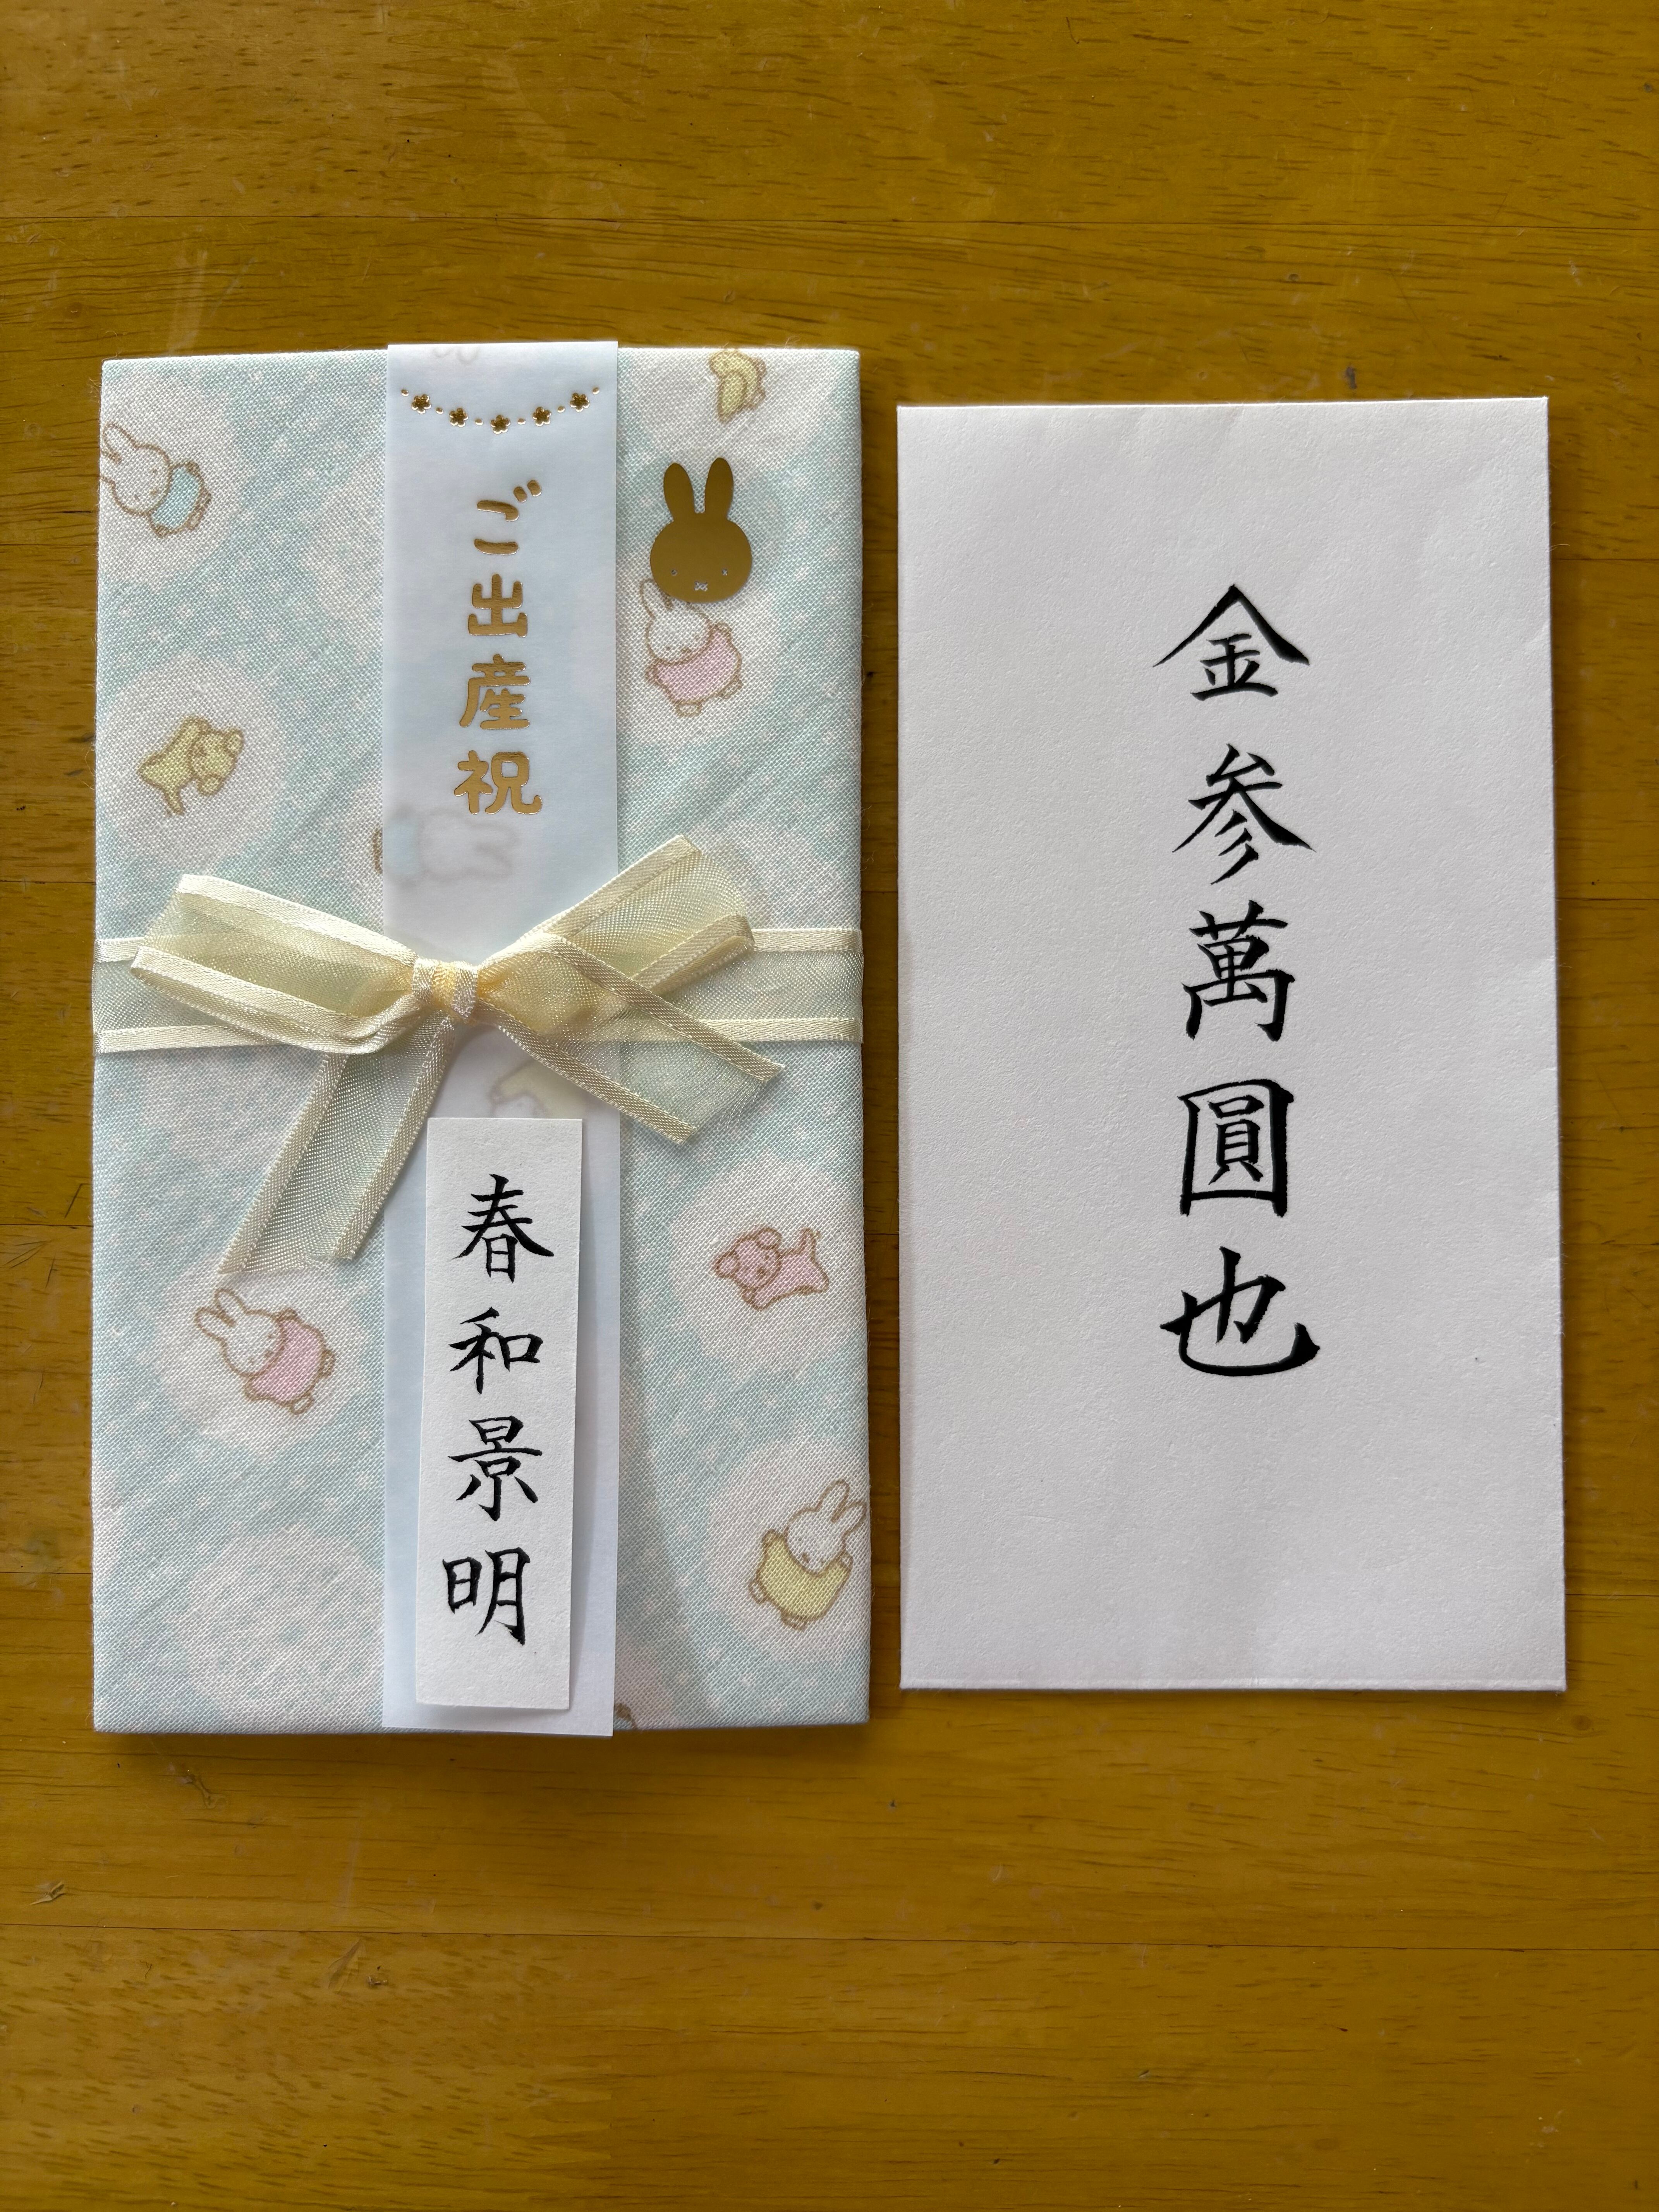 ご出産祝
春和景明
金参萬圓也